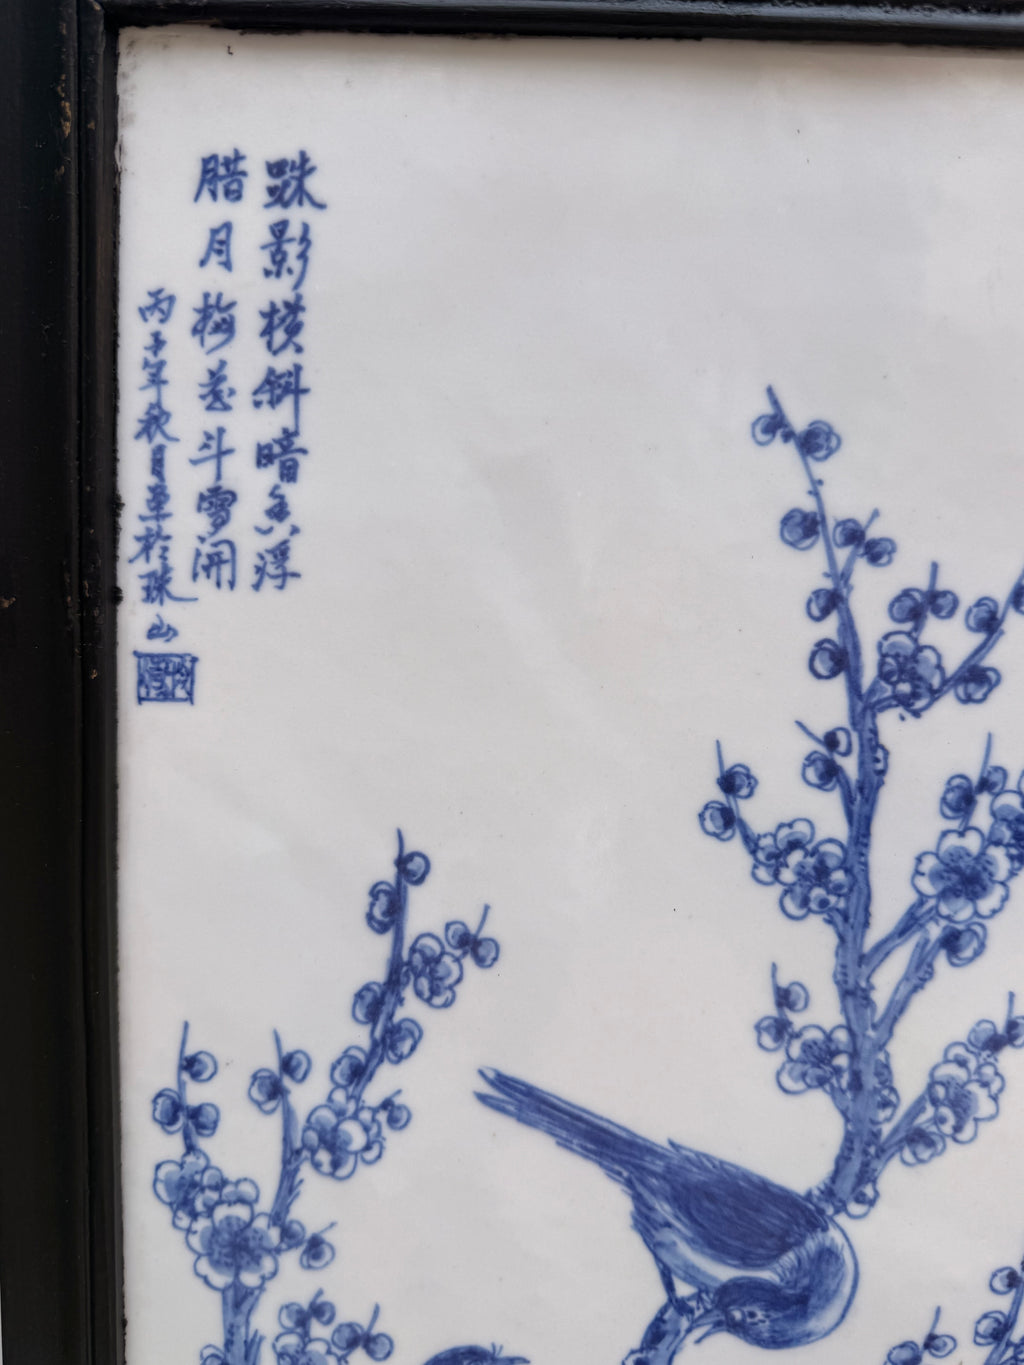 踈影横斜暗香浮
腊月梅花斗雪開
丙子年秋月畫於珠山